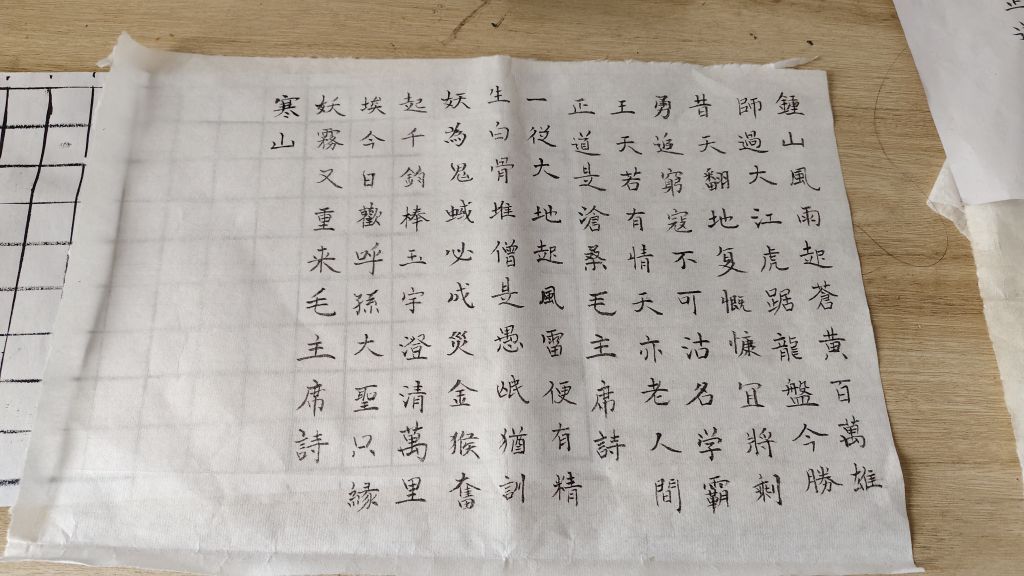 鍾山風雨起蒼黃百萬雄
師過大江虎踞龍盤今勝
昔天翻地复慨慷宜將剩
勇追窮寇不可沽名学霸
王天若有情天亦老人間
正道是滄桑毛主席詩
一從大地起風雷便有精
生白骨堆僧是愚氓猶訓
妖為鬼蜮必成災金猴奮
起千鈞棒玉宇澄清萬里
埃今日歡呼孫大聖只緣
妖霧又重来毛主席詩
寒山